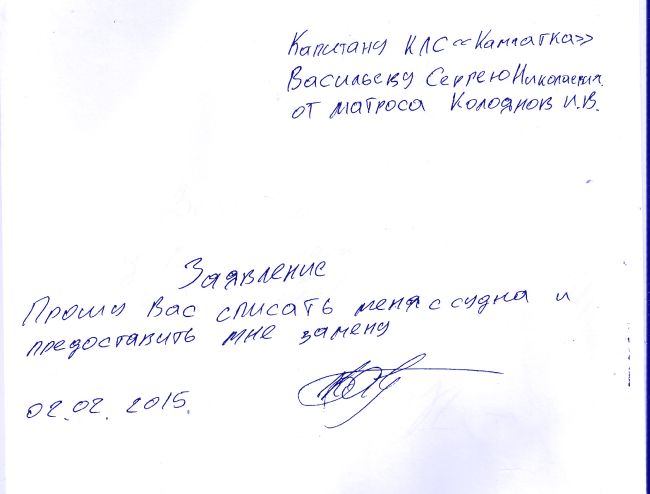 Капитану КЛС «Камчатка»
Васильеву Сергею Николаевич.
от матроса Колодянов И.В.
Заявление
Прошу Вас списать меня с судна и
предоставить мне замену
02.02. 2015.